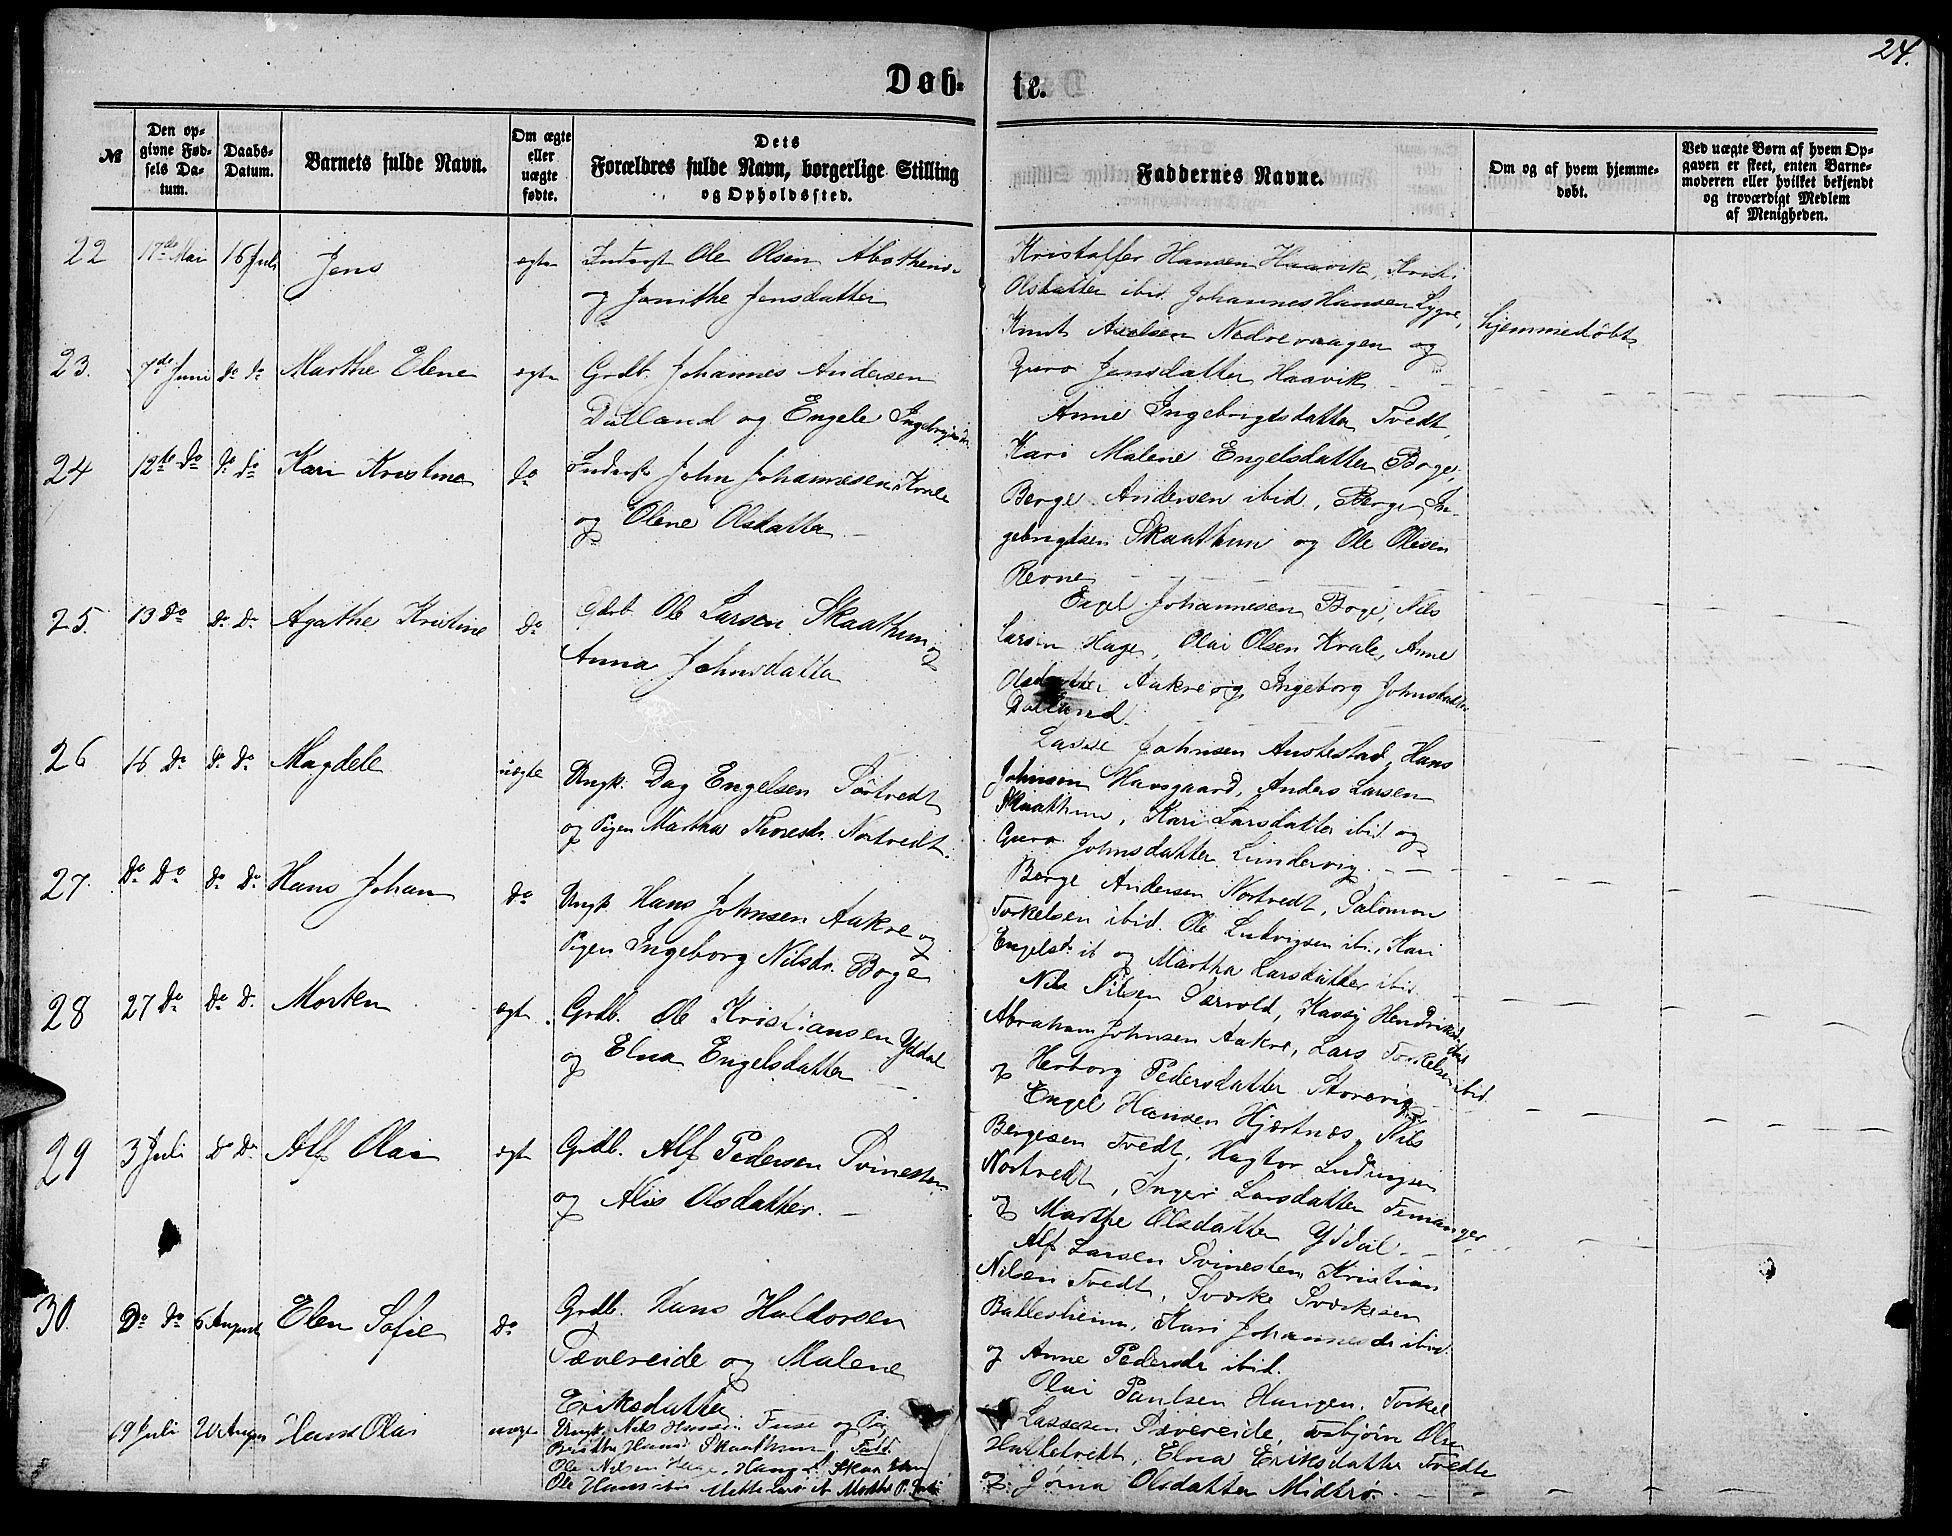 24.
Døb- te.
№
Den opgivne Fødsels Datum.
Daabs-Datum.
Barnets fulde Navn.
Om ægte eller uægte fødte.
Dets Forældres fulde Navn, borgerlige Stilling og Opholdssted.
Faddernes Navne.
Om og af hvem hjemmedøbt.
Ved uægte Børn af hvem Opgaven er skeet, enten Barnemoderen eller hvilket bekjendt og troværdigt Medlem af Menigheden.
22 17de Mai 16 Juli Jens ægte Inderst Ole Olsen
og Jonithe Jensdatter
Kristoffer Hansen Haavik, Kristi
Olsdatter ibid. Johannes Hansen Lygre,
Knut Axelsen Nedrevaagen og
Guro Jensdatter Haavik
hjemmedøbt
23. 7de Juni do do Marthe Elene ægte Grdb. Johannes Andersen
Dalland og Engele
Anne Ingebrigtsdatter Tvedt,
Kari Malene Engelsdatter Boge,
Berge Andersen ibid, Berge In-
gebrigtsen Skaathun og Ole Olesen
Revne
24 12te do do do Kari Kristine do Inderst John Johannesen Kvale
og Olene Olsdatter
Engel Johannesen Boge, Nils
Larsen Hage, Olai Olsen Kvale, Anne
Olsdatter Aakre og Ingeborg Johnsdatter
Dalland.
25. 13 do do do Agathe Kristine do Grdb Ole Larsen Skaathun og
Anna Johnsdatter
Lasse Johnsen Austestad, Hans
Johnsen Havsgaard, Anders Larsen
Skaathun, Kari Larsdatter ibid og
Guro Johnsdatter Lundervig
26 16 do do do Magdele uægte Ungk. Dag Engelsen Sørtvedt
og Pigen Martha Thoresdr. Nortvedt.
Berge Andersen Nortvedt, Salomon
Torkelsen ibid. Ole Ludvigsen ib., Kari
Engelsdr. ib og Martha Larsdatter ibid.
27. do do do do Hans Johan do Ungk Hans Johnsen Aakre og
Pigen Ingeborg Nilsdr. Boge
Nils Nilsen Sørvold, Hendriks
Abraham Johnsen Aakre, Lars Torkelsen ibid
og Herborg Pedersdatter Storevig
28 27 do do do Morten ægte Grdb. Ole Kristiansen Yddal
og Elna Engelsdatter
Engel Hansen Hjørtnæs, Nils
Bergesen Tvedt, Hagtor Ludvigsen
Nortvedt, Inger Larsdatter Femanger
og Marthe Olsdatter Yddal
29 3 Juli do do Alf Olai ægte Grdb. Alf Pedersen Svinesten
og Alis Olsdatter.
Alf Larsen Svinesten, Kristian
Nilsen Tvedt, Sværke Sværkesen
Ballesheim, Kari Johannesdr ibid.
og Anne Pedersdr ibid.
30. do do 6 August Elen Sofie do Grdb. Hans Haldorsen
Tævereide og Malene
Eriksdatter
Olai Paulsen Haugen, Torkel
Lassesen Tævereide, Torbjørn Olsen
Hatletvedt, Elna Eriksdatter Tvedte
og Jørna Olsdatter Midtbø.
19 Juli 20 August Hans Olai uægte Ungk. Nils Hansen Fuse og Pig.
Hansd Skaathun. Fadd.
Ole Nilsen Hage, Skaathun
Ole Hans